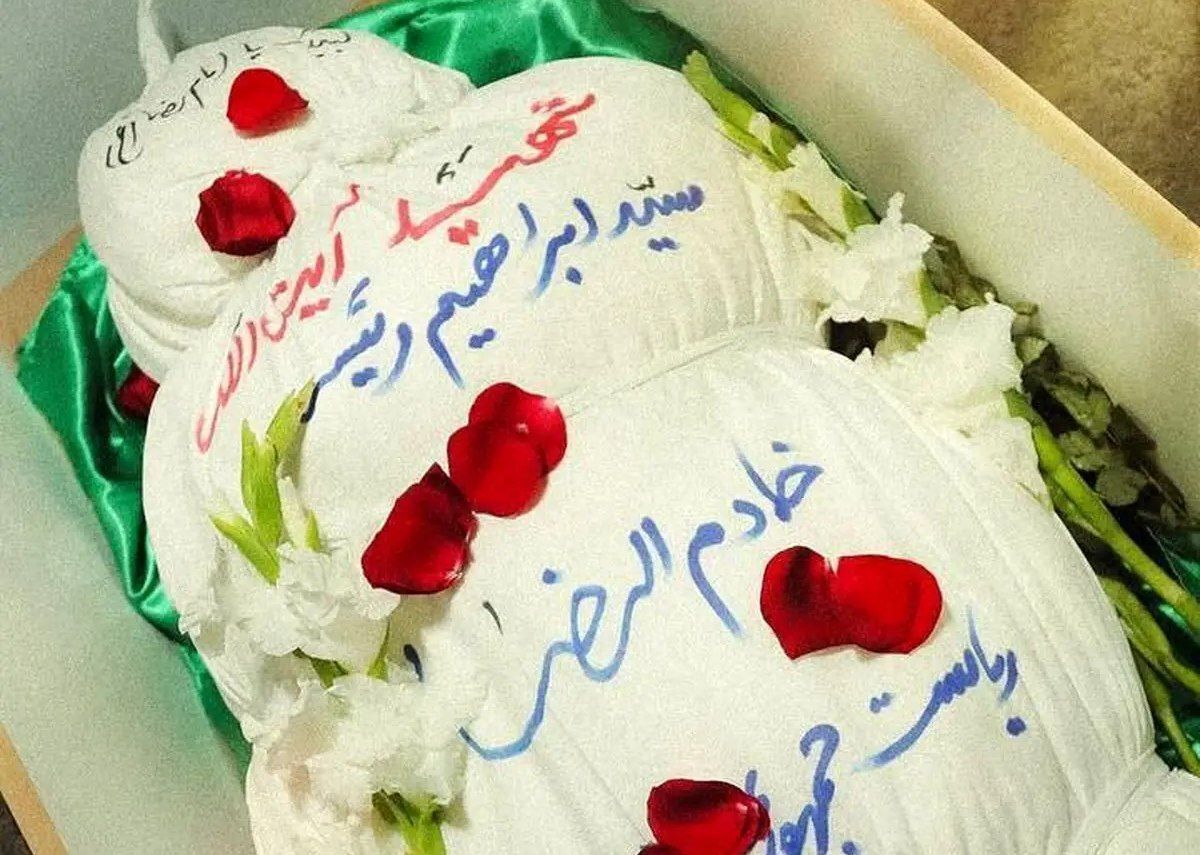 لبیک یا امام رضا (ع)
شهید آیت الله
سید ابراهیم رئیسی
خادم الرضا
ریاست جمهوری